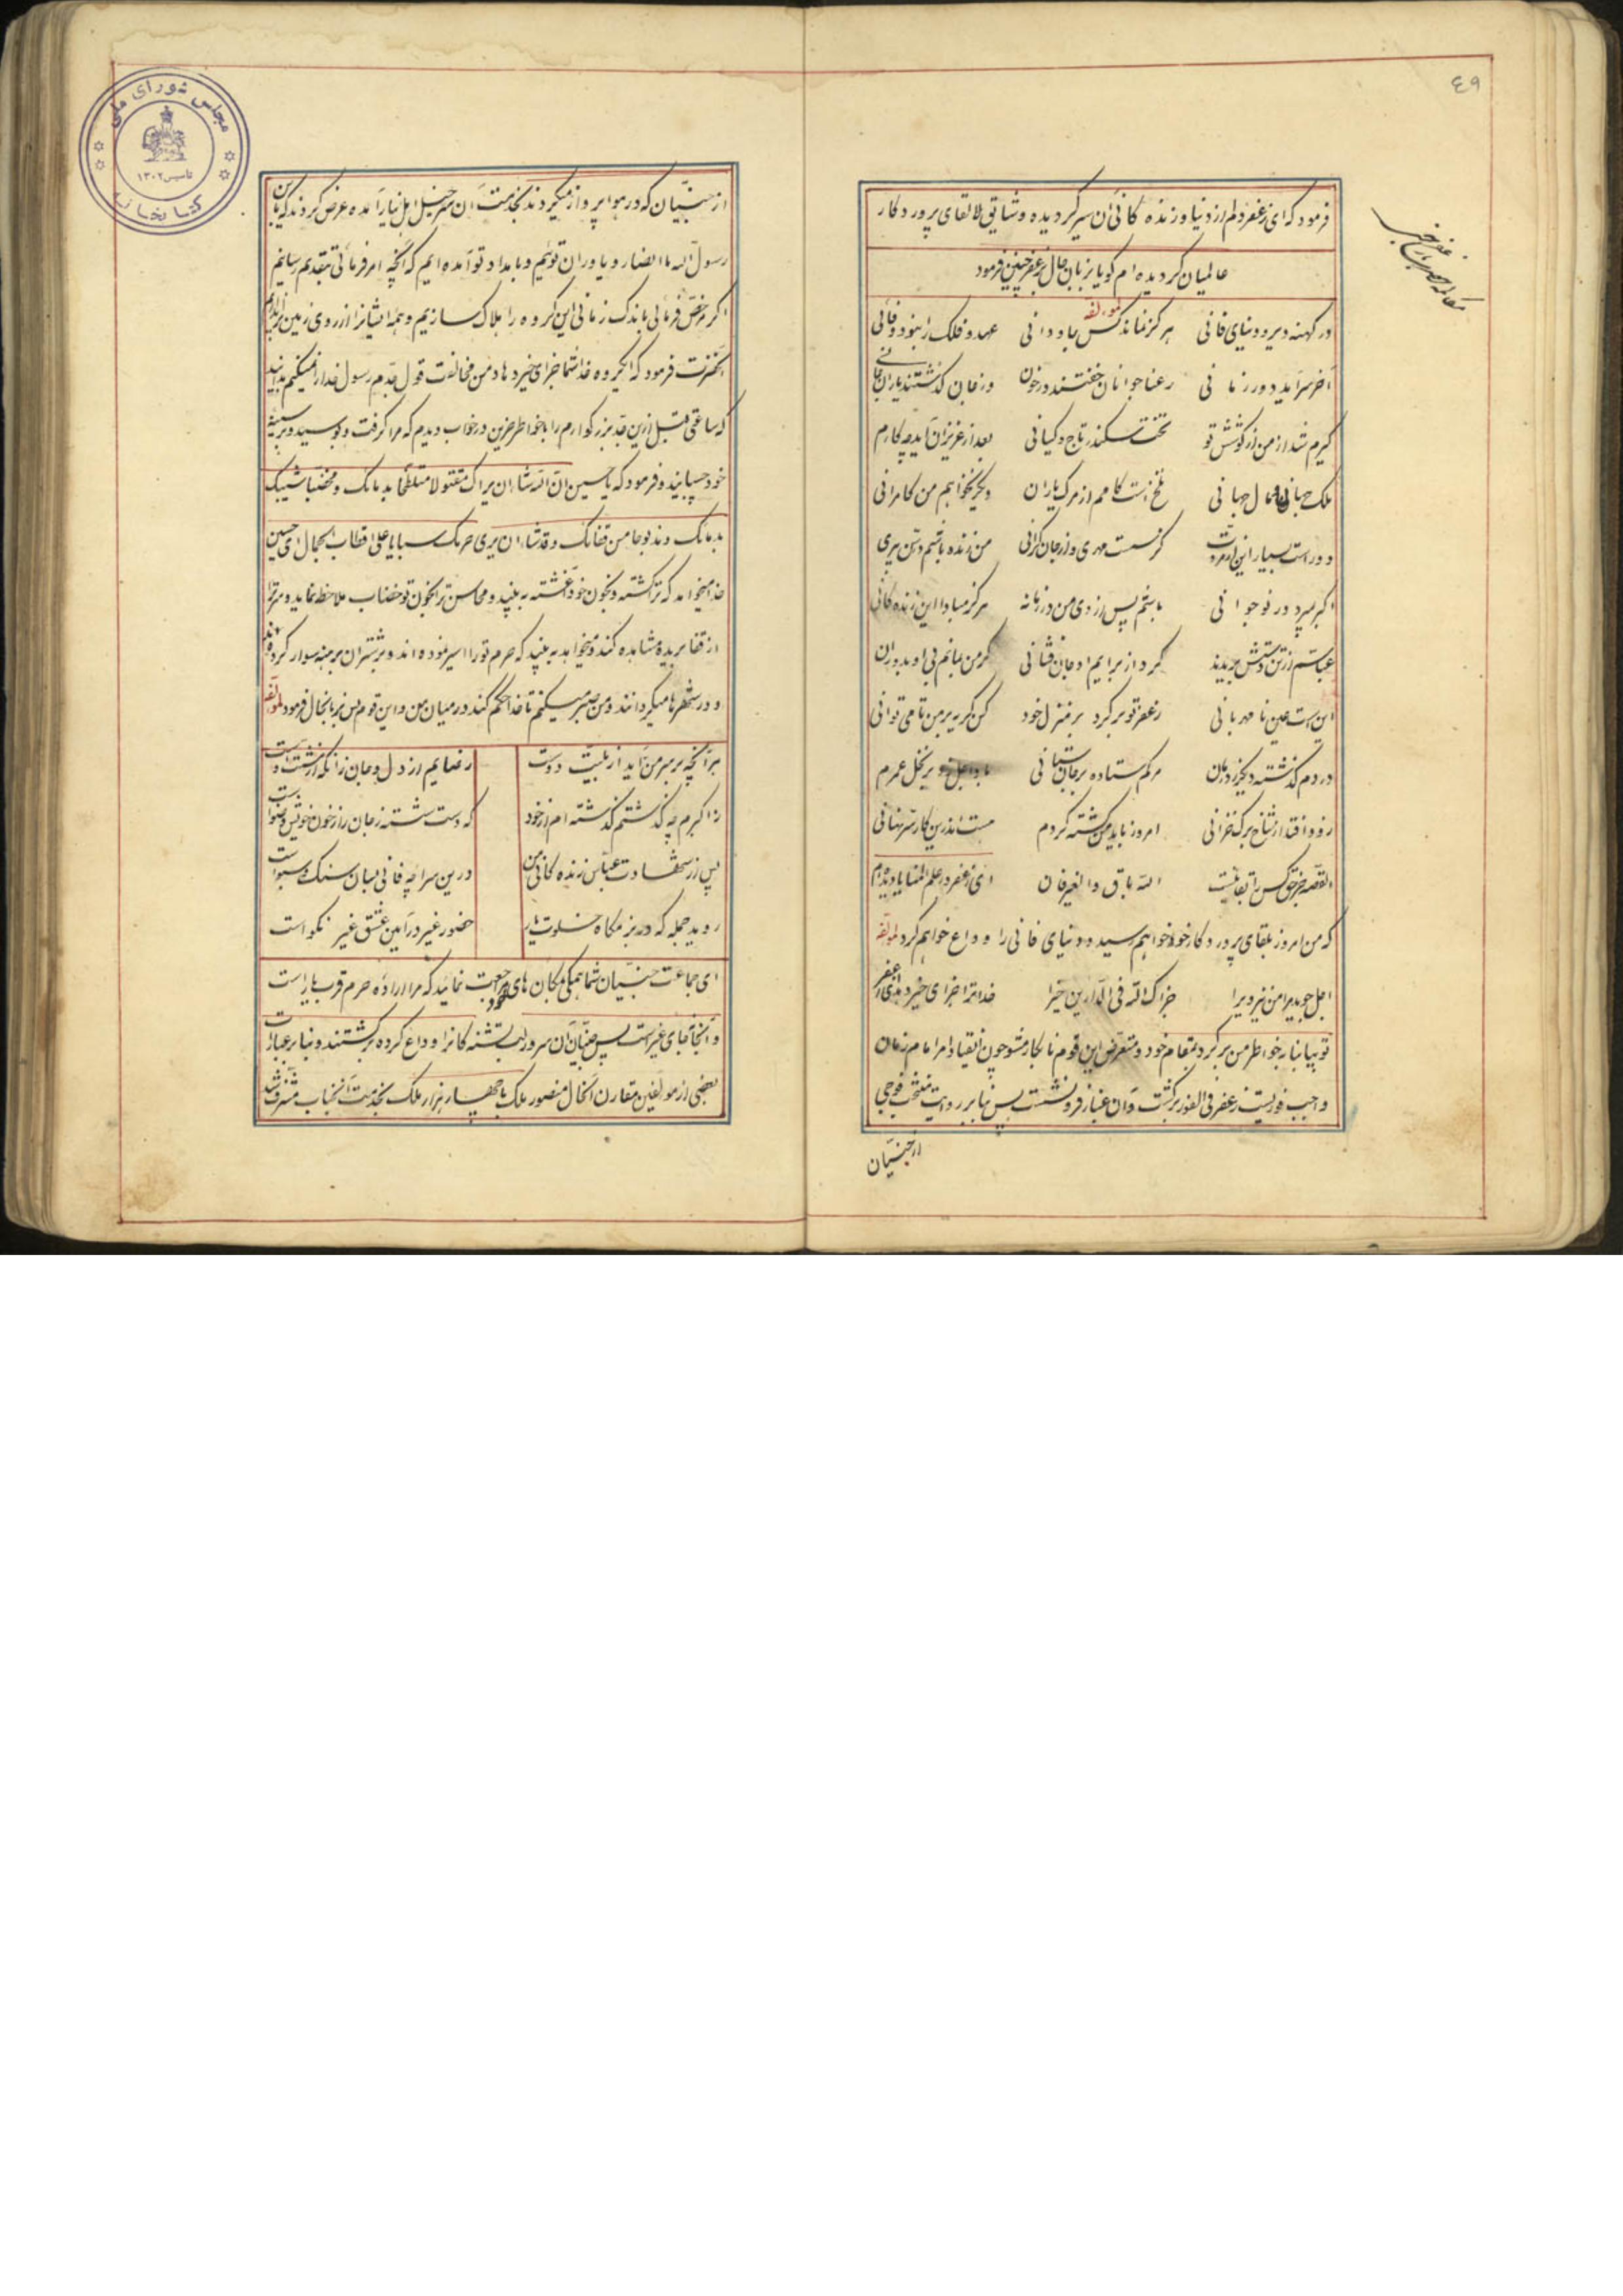 ٤٩
فرمود که ای زعفر دلم از دنیا و زنده کانی آن سیر کردیده و شایق لا لقای پروردکار
عالمیان کردیده ام کویا بزبان حال بزعفر چنین فرمود
لمؤلفه
در کهنه دیر و دنیای فانی هرکز نماند کس جاودانی عهد و فلک را نبود وفائی
آخر سرآمد دور زمانی رعنا جوانان خفتند در خون وز جان کذشتند یاران جانی
کیرم شد از من از کوشش تو تخت سکندر تاج کیانی بعد از عزیزان آید چه کارم
ملک جهانی و مال جهانی تلخ است کامم از مرک یاران دیکر نخواهم من کامرانی
دور است بسیار این از مروت من زنده باشم در سن پیری
اکبر بمیرد در نوجوانی باشم پس از وی من در زمانه هرکز مبادا این زنده کانی
عباسم از تن دستش بریدند کرد از برایم او جان فشانی کر من بمانم بی او بدوران
این است عین نا مهربانی زعفر تو برکرد بر منزل خود کن کریه بر من تا می توانی
دردم کذشته دیکر ز درمان مرکم ستاده بر جان ستانی باد اجل بر نخل عمرم
زود افتد از شاخ برک خزانی امروز باید من کشته کردم هست اندرین کار سر نهانی
القصه جز حق کس را بقا نیست الله باق و الغیر فان ای زعفر در علم المنایا دیده ام
که من امروز بلقای پروردکار خود خواهم رسید و دنیای فانی را وداع خواهم کرد لمؤلفه
اجل جوید مرا من نیز ویرا جزاک الله فی الدارین خیرا خدا ترا جزای خیر دهد ای زعفر
تو بیا بنابر خواطر من برکرد بمقام خود و متعرض این قوم نابکار مشو چون انقیاد امر امام زمان
واجب فوریست زعفر فی الفور برکشت و آن غبار فرو نشست پس بنا بر روایت منتخب فوجی
از جنیان
از جنیان که در هوا پرواز میکردند بخدمت آن سرخیل اهل نیاز آمده عرض کردند که یابن
رسول الله ما انصار و یاوران توئیم و بامداد تو آمده ایم که آنچه امر فرمائی بتقدیم رسانیم
اکر مرخص فرمائی باندک زمانی این کروه را هلاک سازیم و همه ایشانرا از روی زمین براندازیم
آنحضرت فرمود که ایکروه خدا شما را جزای خیر دهاد من مخالفت قول جدم رسول خدا را نمیکنم بدانید
که ساعتی قبل ازین جد بزرکوارم را بخواطر حزین در خواب دیدم که مرا کرفت و بوسید و بر سینه
خود چسپانید و فرمود که یا حسین ان الله شاء ان یراک مقتولا متلطخا بدمائک و مخضبا شیبک
بدمائک و مذبوحا من قفائک و قد شاء ان یری حرمک سبایا علی اقطاب الجمال ای حسین
خدا میخواهد که ترا کشته و بخون خود آغشته به بیند و محاسن ترا بخون تو خضاب ملاحظه نماید و سر ترا
از قفا بریده مشاهده کند و میخواهد به بیند که حرم تو را اسیر نموده اند و بر شتران برهنه سوار کرده اند
و در شهرها میکردانند و من صبر میکنم تا خدا حکم کند در میان من و این قوم پس بزبانحال فرمود لمؤلفه
هر آنچه بر سر من آید از بلیت دوست رضایم از دل و جان زانکه سرنوشت اوست
ز اکبرم چه کذشتم کذشته ام از خود که دست شسته ز جان را ز خون خویش وضوست
پس از شهادت عباس زنده کانی من درین سراچه فانی بسان سنک و سبوست
روید جمله که در بزمکاه خلوت یار حضور غیر در آیین عشق غیر نکو است
ای جماعت جنیان شما همکی بمکان های خود رجعت نمائید که مرا اراده حرم قرب یار است
و آنجا نه جای غیر است پس جنیان آن سرور لب تشنه کانرا وداع کرده برکشتند و بنا بر عبارت
بعضی از مولفین مقارن آنحال منصور ملک با چهار هزار ملک بخدمت آنجناب مشرف شد
مجلس شورای ملی
تاسیس ۱۳۰۲
کتابخانه